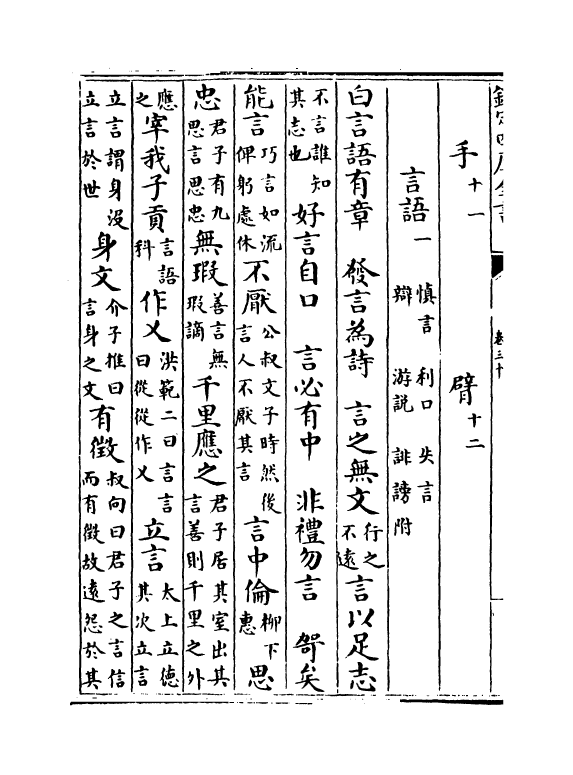 欽定四庫全書 卷三十
手十一 臂十二
言語一 慎言 利口 失言 辯 游說 誹謗附
白言語有章 發言為詩 言之無文行之不遠言以足志
不言誰知其志也好言自口 言必有中 非禮勿言 哿矣
能言巧言如流俾躬處休不厭公叔文子時然後言人不厭其言言中倫柳下惠思
忠君子有九思言思忠無瑕善言無瑕謫千里應之君子居其室出其言善則千里之外
應之宰我子貢言語科作乂洪範二曰言言曰從從作乂立言太上立德其次立言
立言謂身沒立言於世身文介子推曰言身之文有徵叔向曰君子之言信而有徵故遠怨於其